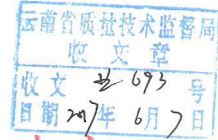 云南省质量技术监督局
收文章
收文 693 号
日期 2017年 6月 7日